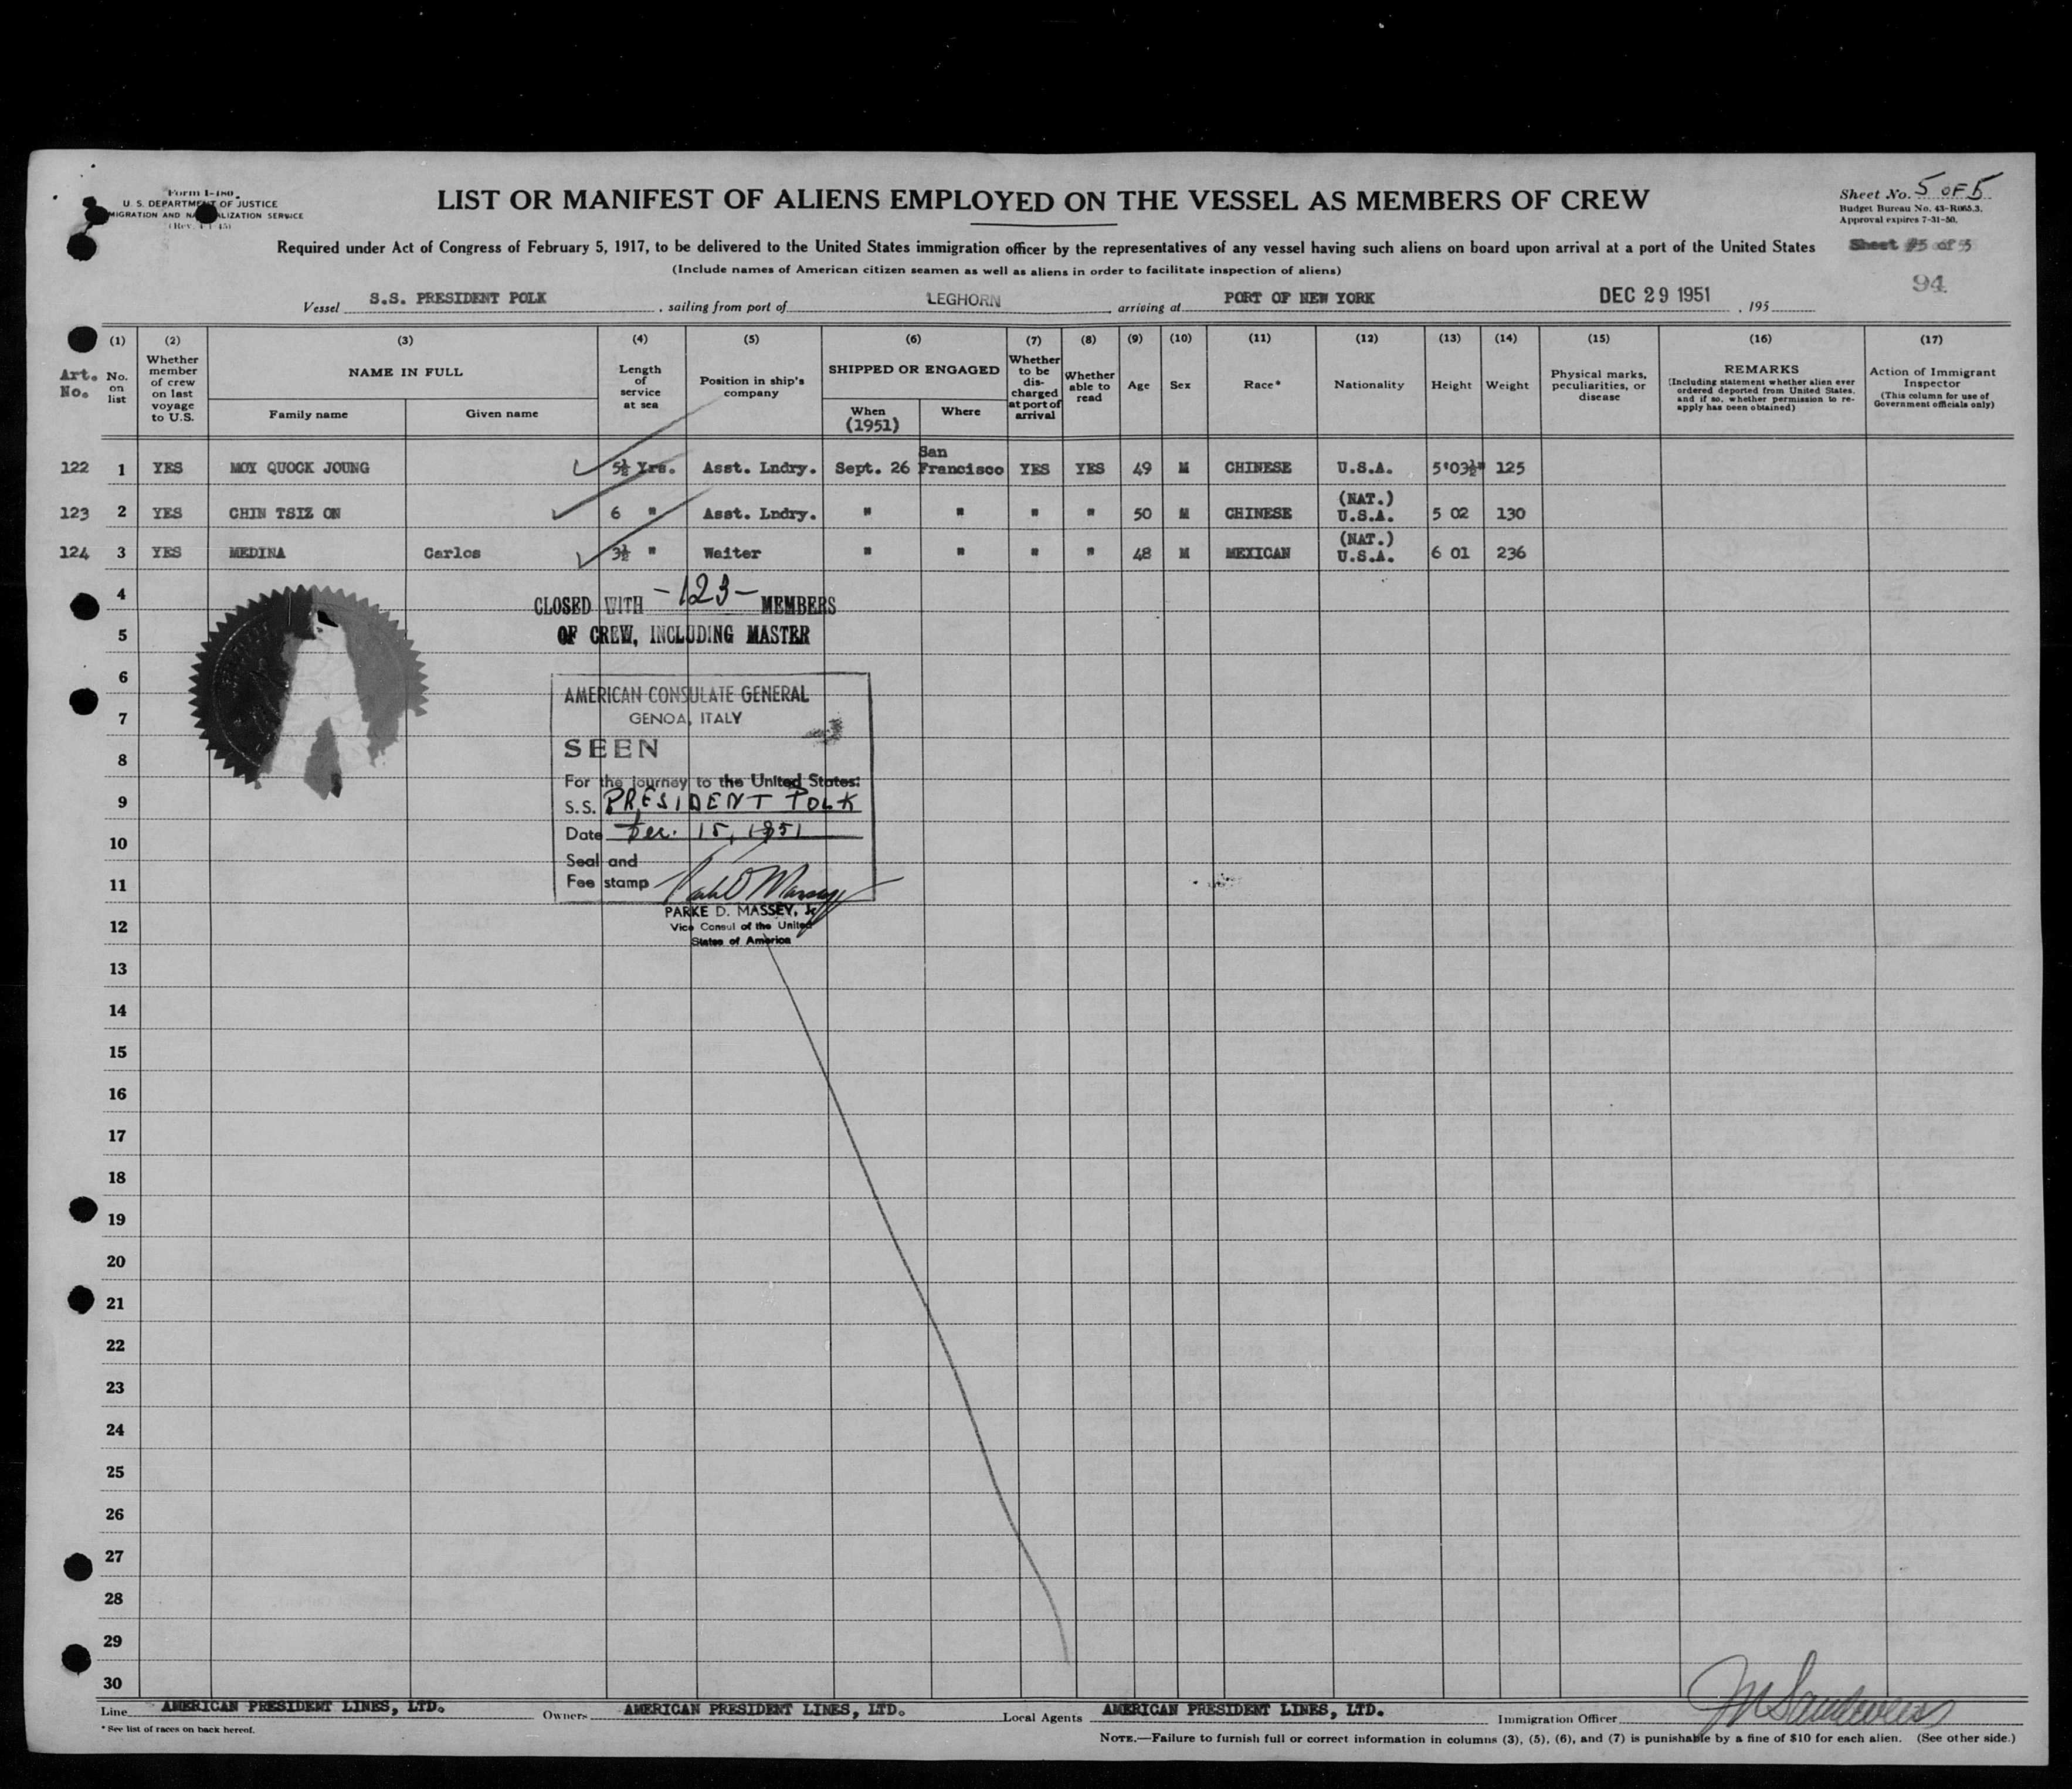 Form I-480
U. S. DEPARTMENT OF JUSTICE
MIGRATION AND NATURALIZATION SERVICE
(Rev. 4-1-45)
LIST OR MANIFEST OF ALIENS EMPLOYED ON THE VESSEL AS MEMBERS OF CREW
Sheet No. 5 OF 5
Budget Bureau No. 43-R065.3.
Approval expires 7-31-50.
Required under Act of Congress of February 5, 1917, to be delivered to the United States immigration officer by the representatives of any vessel having such aliens on board upon arrival at a port of the United States
Sheet #5 of 5
(Include names of American citizen seamen as well as aliens in order to facilitate inspection of aliens)
94
Vessel S.S. PRESIDENT POLK, sailing from port of LEGHORN, arriving at PORT OF NEW YORK DEC 29 1951, 195
(1) (2) (3) (4) (5) (6) (7) (8) (9) (10) (11) (12) (13) (14) (15) (16) (17)
Art. No.
No. on list
Whether member of crew on last voyage to U.S.
NAME IN FULL
Family name
Given name
Length of service at sea
Position in ship's company
SHIPPED OR ENGAGED
When (1951)
Where
Whether to be discharged at port of arrival
Whether able to read
Age
Sex
Race*
Nationality
Height
Weight
Physical marks, peculiarities, or disease
REMARKS
(Including statement whether alien ever ordered deported from United States, and if so, whether permission to reapply has been obtained)
Action of Immigrant Inspector
(This column for use of Government officials only)
122 1 YES MOY QUOCK JOUNG 5½ Yrs. Asst. Lndry. Sept. 26 San Francisco YES YES 49 M CHINESE U.S.A. 5'03½" 125
123 2 YES CHIN TSIZ ON 6 " Asst. Lndry. " " " " 50 M CHINESE (NAT.) U.S.A. 5 02 130
124 3 YES MEDINA Carlos 3½ " Waiter " " " " 48 M MEXICAN (NAT.) U.S.A. 6 01 236
4
CLOSED WITH -123- MEMBERS
5
OF CREW, INCLUDING MASTER
6
AMERICAN CONSULATE GENERAL
7
GENOA, ITALY
SEEN
8
For the journey to the United States:
9
S.S. PRESIDENT POLK
Date Dec. 15, 1951
10
Seal and
Fee stamp
11
PARKE D. MASSEY, Jr
12
Vice Consul of the United
States of America
13
14
15
16
17
18
19
20
21
22
23
24
25
26
27
28
29
30
Line AMERICAN PRESIDENT LINES, LTD. Owners AMERICAN PRESIDENT LINES, LTD. Local Agents AMERICAN PRESIDENT LINES, LTD. Immigration Officer
* See list of races on back hereof.
NOTE.—Failure to furnish full or correct information in columns (3), (5), (6), and (7) is punishable by a fine of $10 for each alien. (See other side.)